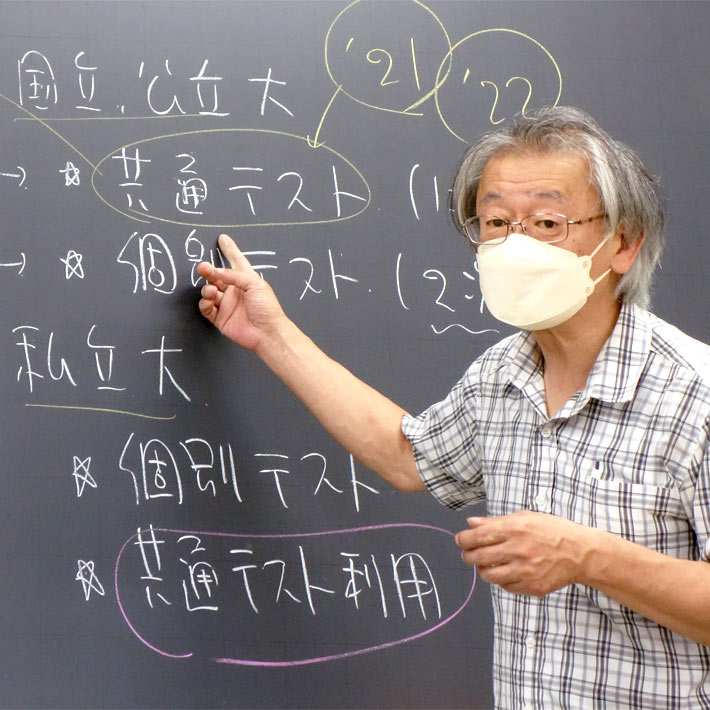 '21 '22
国立.公立大
→ ☆ 共通テスト. (1
→ ☆ 個別テスト. (2次
私立大
☆ 個別テスト
☆ 共通テスト利用